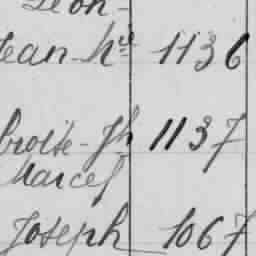 Léon -
Jean - Nie 1136
broise - Jh 1137
Marcel
Joseph 1067